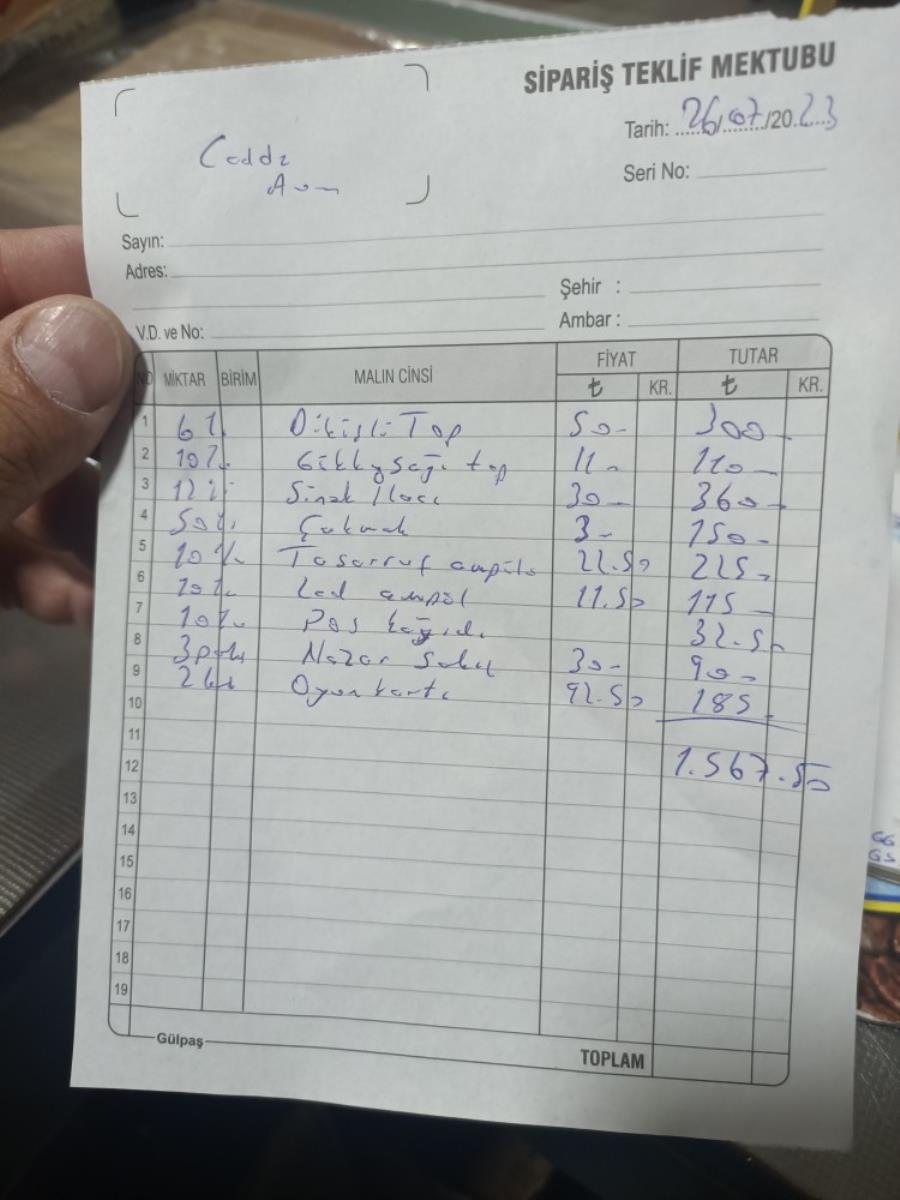 SİPARİŞ TEKLİF MEKTUBU
Tarih: 26/07/2023
Seri No:
Cadde
Avm
Sayın:
Adres:
Şehir :
V.D. ve No:
Ambar :
NO MİKTAR BİRİM MALIN CİNSİ FİYAT TUTAR
₺ KR. ₺ KR.
1 6 Dikişli Top 50- 300-
2 10 top 11- 110-
3 12 Sinek ilacı 30- 360-
4 50 Çakmak 3- 150-
5 10 Tasarruf ampülü 22.50 225-
6 10 Led ampül 11.50 115-
7 10 Pos kağıdı 32.50
8 3 Nazar 30- 90-
9 2 Oyun kartı 92.50 185-
10
11
12 1.567.50
13
14
15
16
17
18
19
Gülpaş
TOPLAM